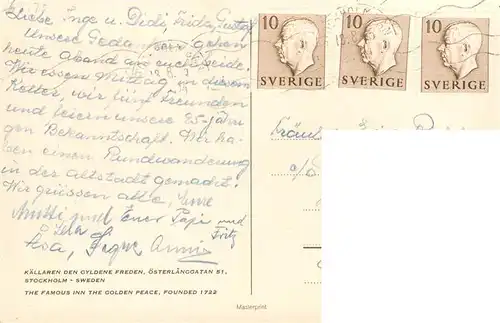 Liebe Inge u. Didi, Frida, Gustav
Unsere Gedanken gehen
heute abend an euch beide.
Wir essen Mittag in diesem
Keller, wir fünf Freunden
und feiern unsere 25-jähri
gen Bekanntschaft. Wir ha-
ben einen Rundwanderung
in der Altstadt gemacht.
Wir grüssen alle, Eure
Antti und Euer Papi und
Fritz
Eva,
10 10 10
SVERIGE SVERIGE SVERIGE
Fräulein
KÄLLAREN DEN GYLDENE FREDEN, ÖSTERLÅNGGATAN 51,
STOCKHOLM - SWEDEN
THE FAMOUS INN THE GOLDEN PEACE, FOUNDED 1722
Masterprint